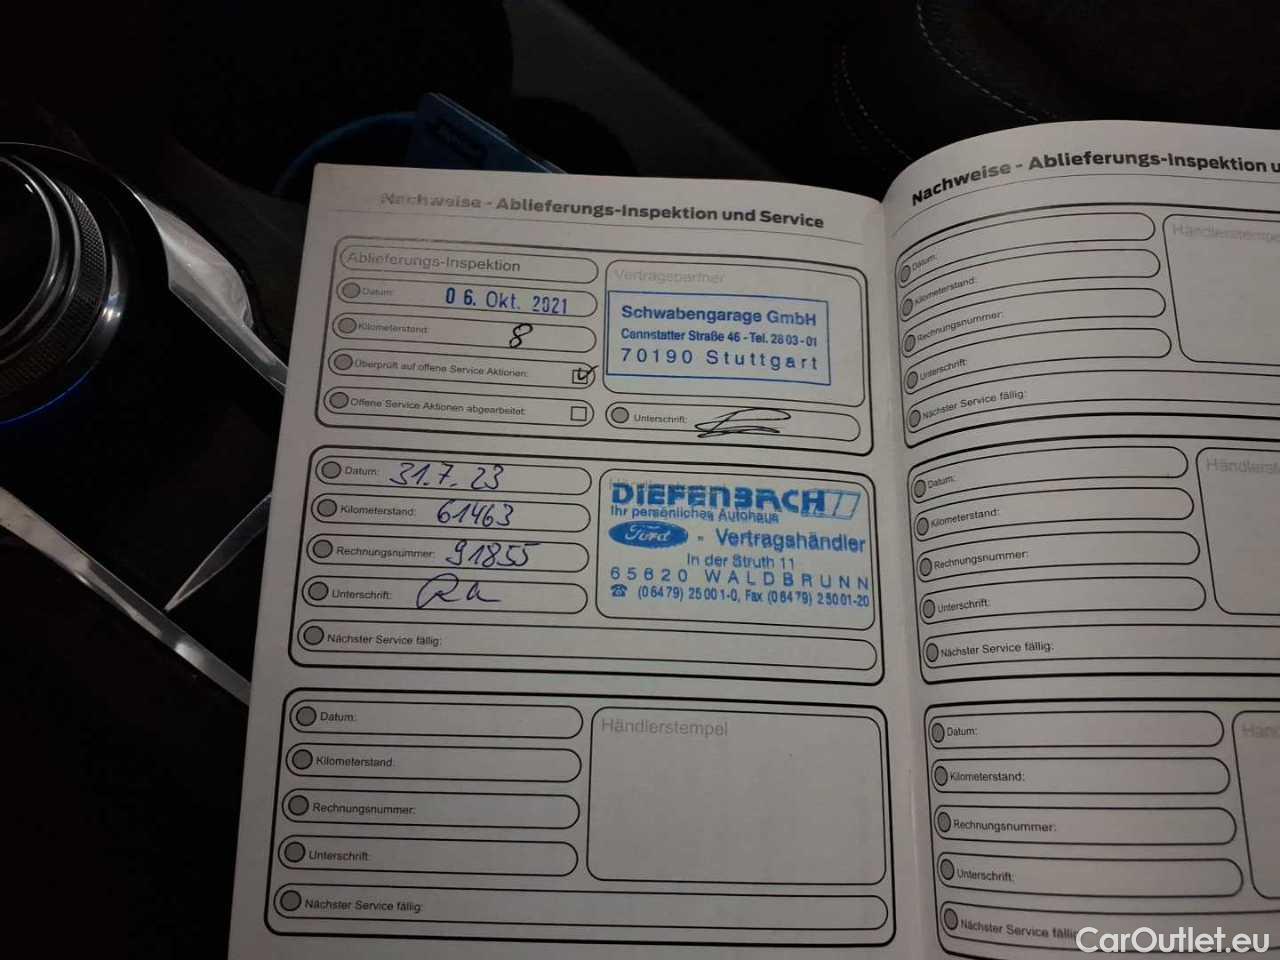 Nachweise - Ablieferungs-Inspektion und Service
Ablieferungs-Inspektion
Datum: 06. Okt. 2021
Kilometerstand: 8
Überprüft auf offene Service Aktionen:
Offene Service Aktionen abgearbeitet:
Vertragspartner
Schwabengarage GmbH
Cannstatter Straße 46 - Tel. 28 03-01
70190 Stuttgart
Unterschrift:
Datum: 31.7.23
Kilometerstand: 61463
Rechnungsnummer: 91855
Unterschrift:
Nächster Service fällig:
DIEFENBACH
Ihr persönliches Autohaus
Ford - Vertragshändler
In der Struth 11
65620 WALDBRUNN
☎ (06479) 25001-0, Fax (06479) 25001-20
Datum:
Kilometerstand:
Rechnungsnummer:
Unterschrift:
Nächster Service fällig:
Händlerstempel
Nachweise - Ablieferungs-Inspektion u
Datum:
Kilometerstand:
Rechnungsnummer:
Unterschrift:
Nächster Service fällig:
Händlerstempel
Datum:
Kilometerstand:
Rechnungsnummer:
Unterschrift:
Nächster Service fällig:
Händlerste
Datum:
Kilometerstand:
Rechnungsnummer:
Unterschrift:
Nächster Service fällig
Händ
CarOutlet.eu